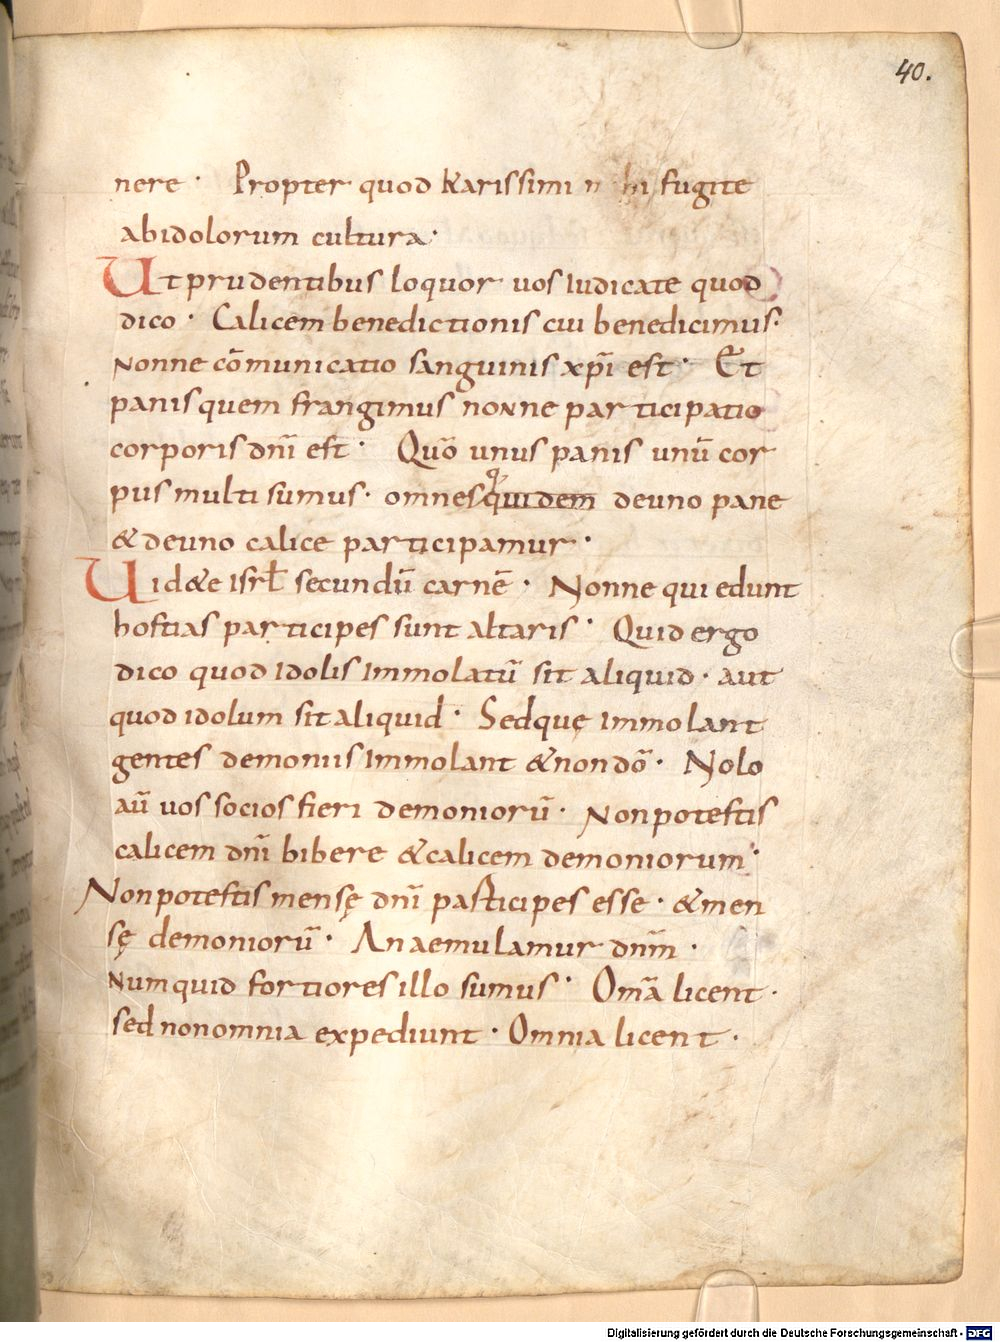 40.
nere · Propter quod karissimi fugite
ab idolorum cultura·
Ut prudentibus loquor uos iudicate quod
dico · Calicem benedictionis cui benedicimus·
Nonne cōmunicatio sanguinis xp̄i est · Et
panis quem frangimus nonne participatio
corporis dn̄i est · Quō unus panis unū cor
pus multi sumus · omnes quidem de uno pane
& de uno calice participamur ·
Uid&e isrl̄ secundū carnē · Nonne qui edunt
hostias participes sunt altaris · Quid ergo
dico quod idolis immolatū sit aliquid · aut
quod idolum sit aliquid · Sed quę immolant
gentes demoniis immolant & non dō · Nolo
aū uos socios fieri demoniorū · Non potestis
calicem dn̄i bibere & calicem demoniorum ·
Non potestis mensę dn̄i participes esse · & men
sę demoniorū · An aemulamur dnm̄ ·
Numquid fortiores illo sumus · Om̄a licent ·
sed non omnia expediunt · Omnia licent ·
Digitalisierung gefördert durch die Deutsche Forschungsgemeinschaft - DFG